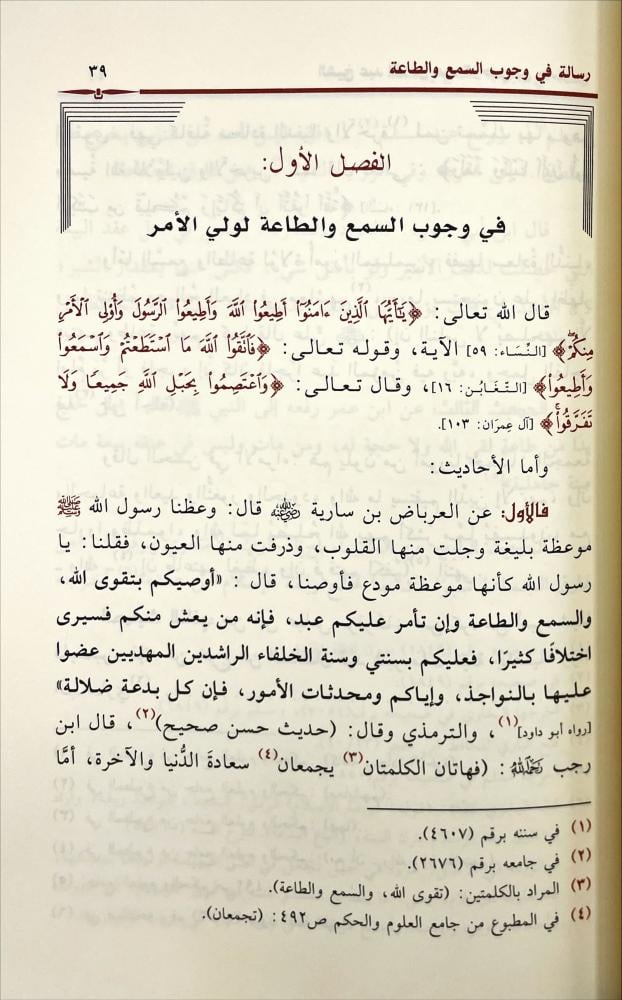 رسالة في وجوب السمع والطاعة
٣٩
الفصل الأول:
في وجوب السمع والطاعة لولي الأمر
قال الله تعالى: ﴿يَٰٓأَيُّهَا ٱلَّذِينَ ءَامَنُوٓا۟ أَطِيعُوا۟ ٱللَّهَ وَأَطِيعُوا۟ ٱلرَّسُولَ وَأُو۟لِى ٱلْأَمْرِ
مِنكُمْ﴾ [النِّسَاء: ٥٩] الآية، وقوله تعالى: ﴿فَٱتَّقُوا۟ ٱللَّهَ مَا ٱسْتَطَعْتُمْ وَٱسْمَعُوا۟
وَأَطِيعُوا۟﴾ [التَّغَابُن: ١٦]، وقال تعالى: ﴿وَٱعْتَصِمُوا۟ بِحَبْلِ ٱللَّهِ جَمِيعًا وَلَا
تَفَرَّقُوا۟﴾ [آل عِمرَان: ١٠٣].
وأما الأحاديث:
فالأول: عن العرباض بن سارية رضي الله عنه قال: وعظنا رسول الله ﷺ
موعظة بليغة وجلت منها القلوب، وذرفت منها العيون، فقلنا: يا
رسول الله كأنها موعظة مودع فأوصنا، قال: «أوصيكم بتقوى الله،
والسمع والطاعة وإن تأمر عليكم عبد، فإنه من يعش منكم فسيرى
اختلافًا كثيرًا، فعليكم بسنتي وسنة الخلفاء الراشدين المهديين عضوا
عليها بالنواجذ، وإياكم ومحدثات الأمور، فإن كل بدعة ضلالة»
[رواه أبو داود](١)، والترمذي وقال: (حديث حسن صحيح)(٢)، قال ابن
رجب رحمه الله: (فهاتان الكلمتان(٣) يجمعان(٤) سعادةَ الدُّنيا والآخرة، أمَّا
(١) في سننه برقم (٤٦٠٧).
(٢) في جامعه برقم (٢٦٧٦).
(٣) المراد بالكلمتين: (تقوى الله، والسمع والطاعة).
(٤) في المطبوع من جامع العلوم والحكم ص٤٩٢: (تجمعان).